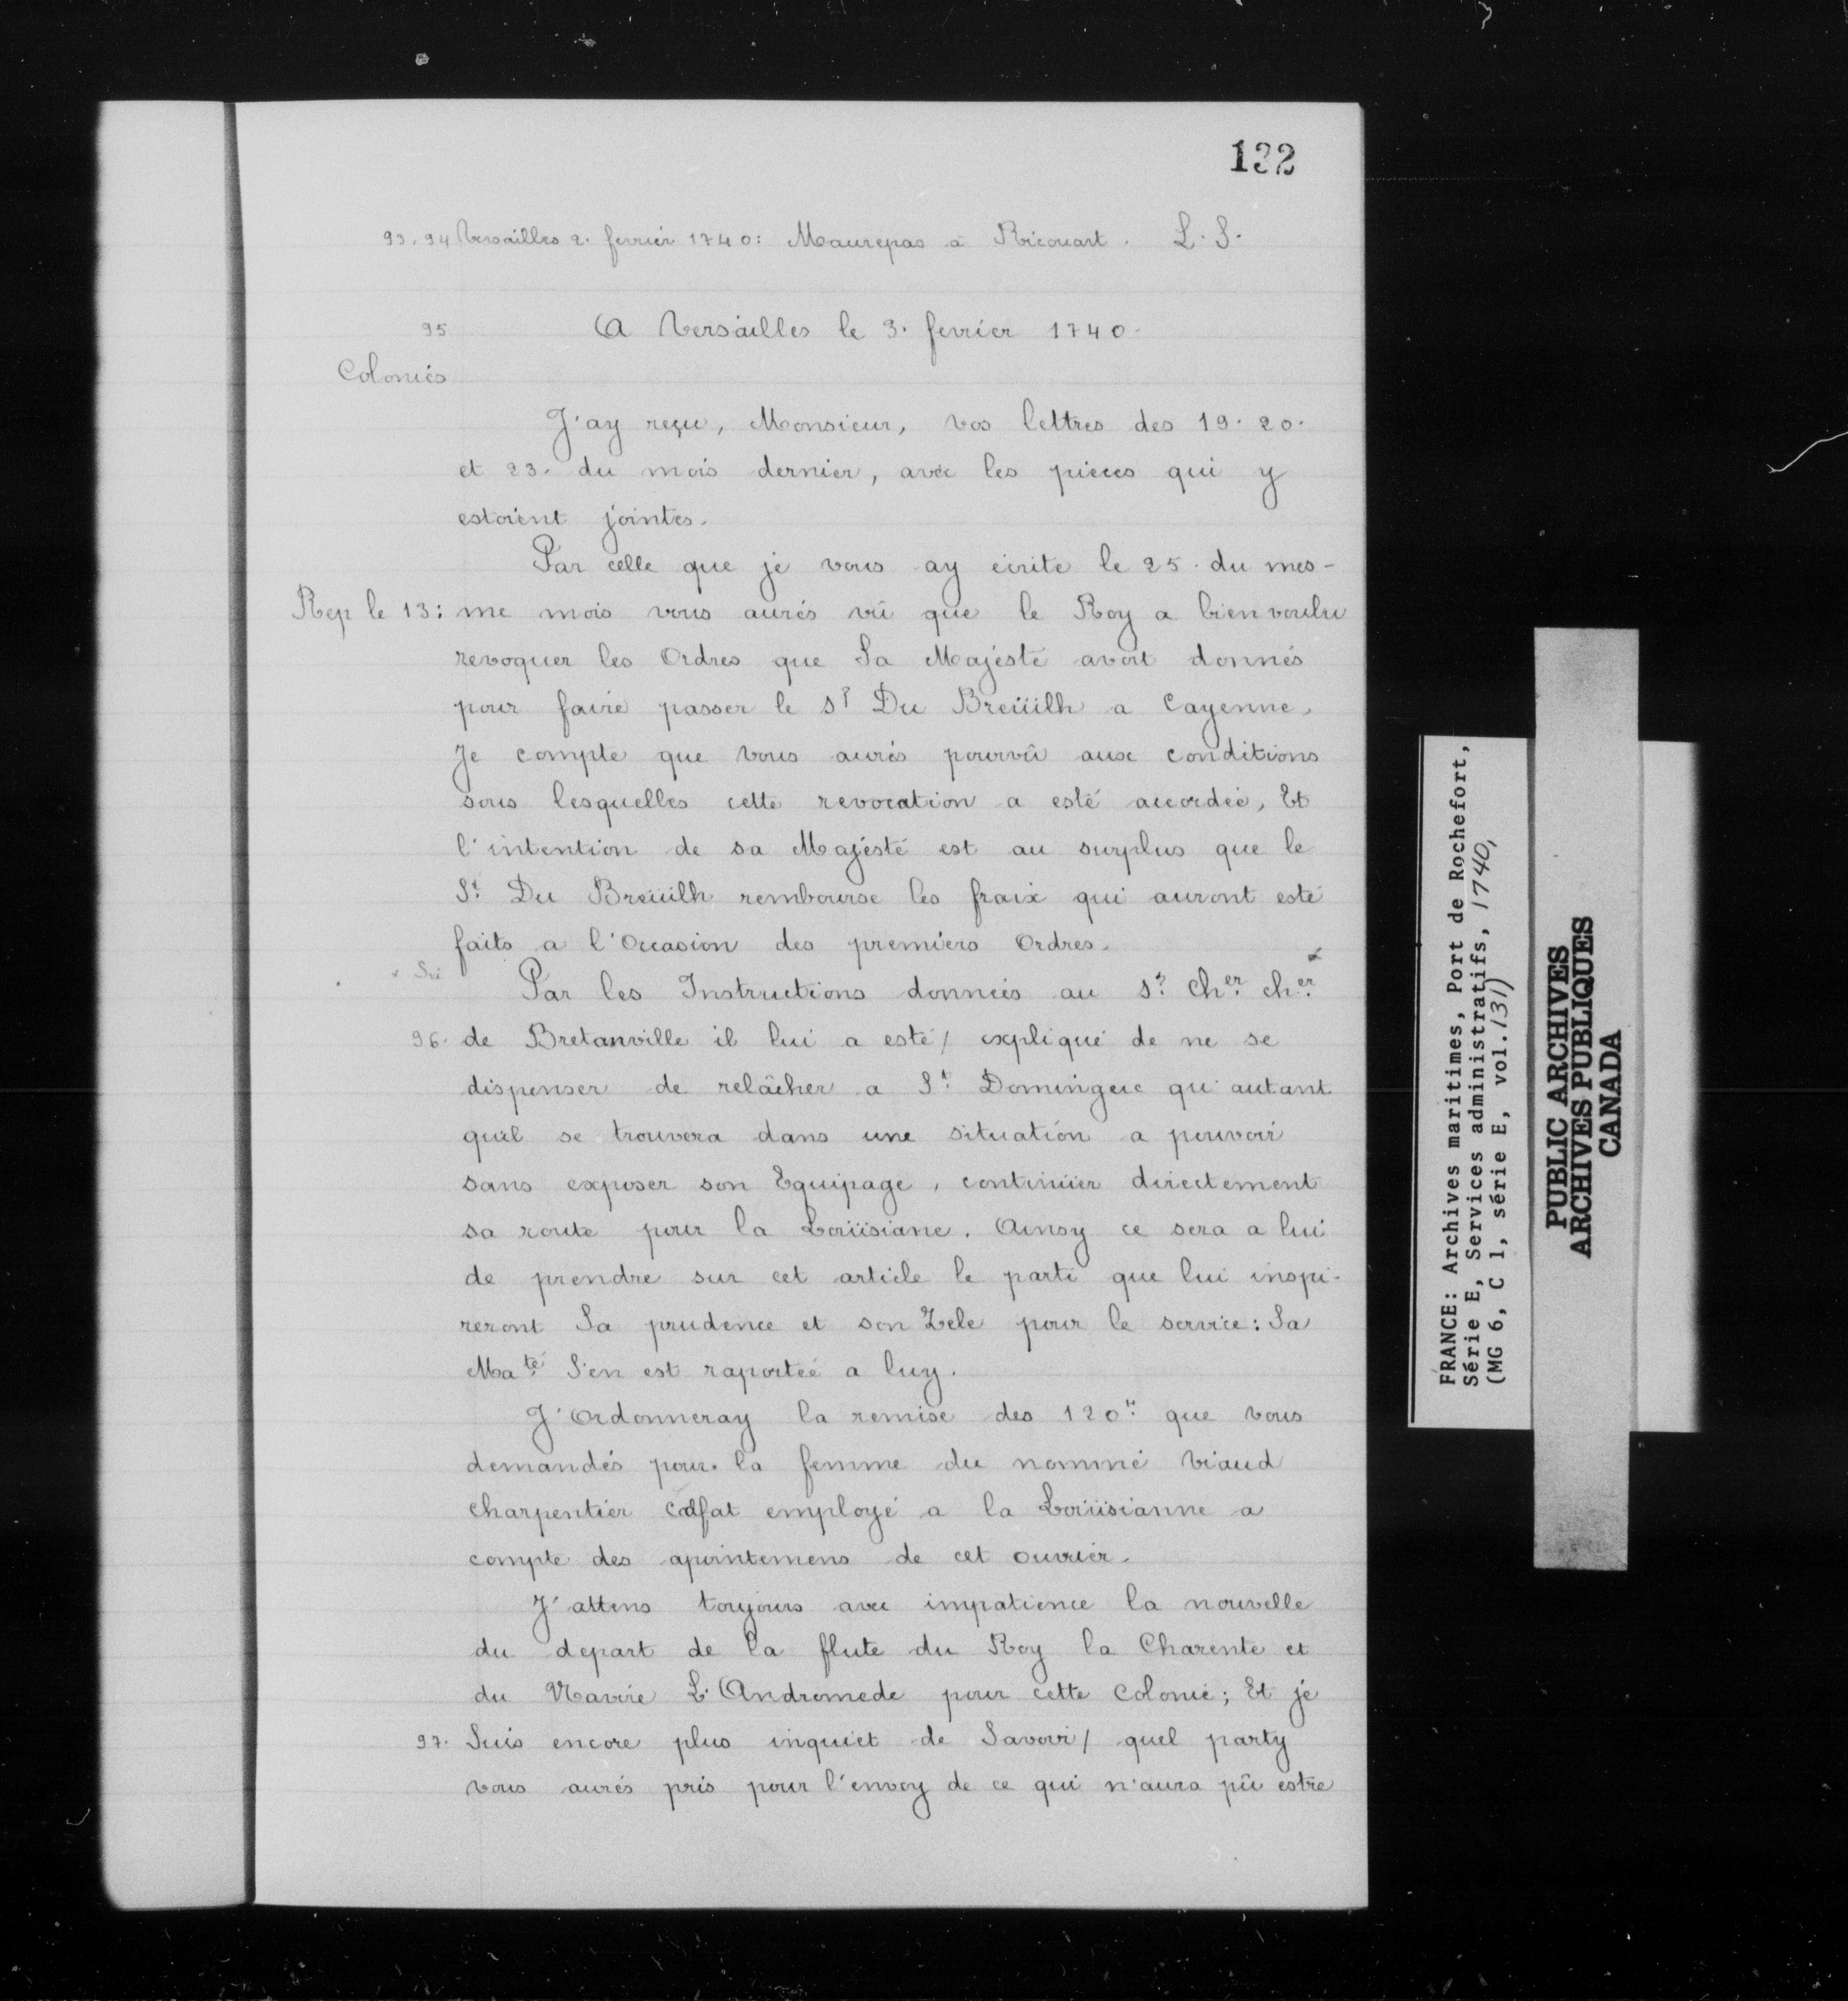 132
93.94 Versailles 2. fevrier 1740: Maurepas a Ricouart. L.S.
95 A Versailles le 3. fevrier 1740.
Colonies
J'ay reçu, Monsieur, vos lettres des 19. 20.
et 23. du mois dernier, avec les pieces qui y
estoient jointes.
Par celle que je vous ay écrite le 25. du mes-
Rep le 13: me mois vous aurés vû que le Roy a bien voulu
revoquer les Ordres que Sa Majesté avoit donnés
pour faire passer le Sr Du Breüilh a Cayenne,
Je compte que vous aurés pourvû aux conditions
sous lesquelles cette revocation a esté accordée, Et
l'intention de sa Majesté est au surplus que le
Sr. Du Breüilh rembourse les fraix qui auront esté
faits a l'Occasion des premiers Ordres.
x Sic Par les Instructions données au Sr. Cher. cher. x
96. de Bretanville il lui a esté / expliqué de ne se
dispenser de relâcher a St. Domingue qu'autant
qu'il se trouvera dans une situation a pouvoir
sans exposer son Equipage, continüer directement
sa route pour la Loüisiane. Ainsy ce sera a lui
de prendre sur cet article le parti que lui inspi-
reront Sa prudence et son Zele pour le service: Sa
Maté. S'en est raportée a luy.
J'Ordonneray la remise des 120ll que vous
demandés pour la femme du nommé Viaud
charpentier calfat employé a la Loüisianne a
compte des apointemens de cet ouvrier.
J'attens toujours avec impatience la nouvelle
du depart de la flute du Roy la Charente et
du Navire L'Andromede pour cette Colonie; Et je
97. Suis encore plus inquiet de Savoir / quel party
vous aurés pris pour l'envoy de ce qui n'aura pû estre
FRANCE: Archives maritimes, Port de Rochefort,
Série E, Services administratifs, 1740,
(MG 6, C 1, série E, vol. 131)
PUBLIC ARCHIVES
ARCHIVES PUBLIQUES
CANADA